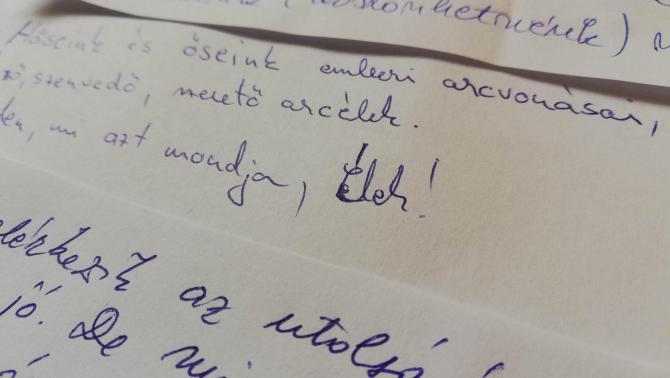 (viszonhetnénk)
Hőseink és őseink emberi arcvonásai,
szenvedő, nevető arcélek.
mi azt mondja, Élek!
elérkezik az utolsó
jő. De